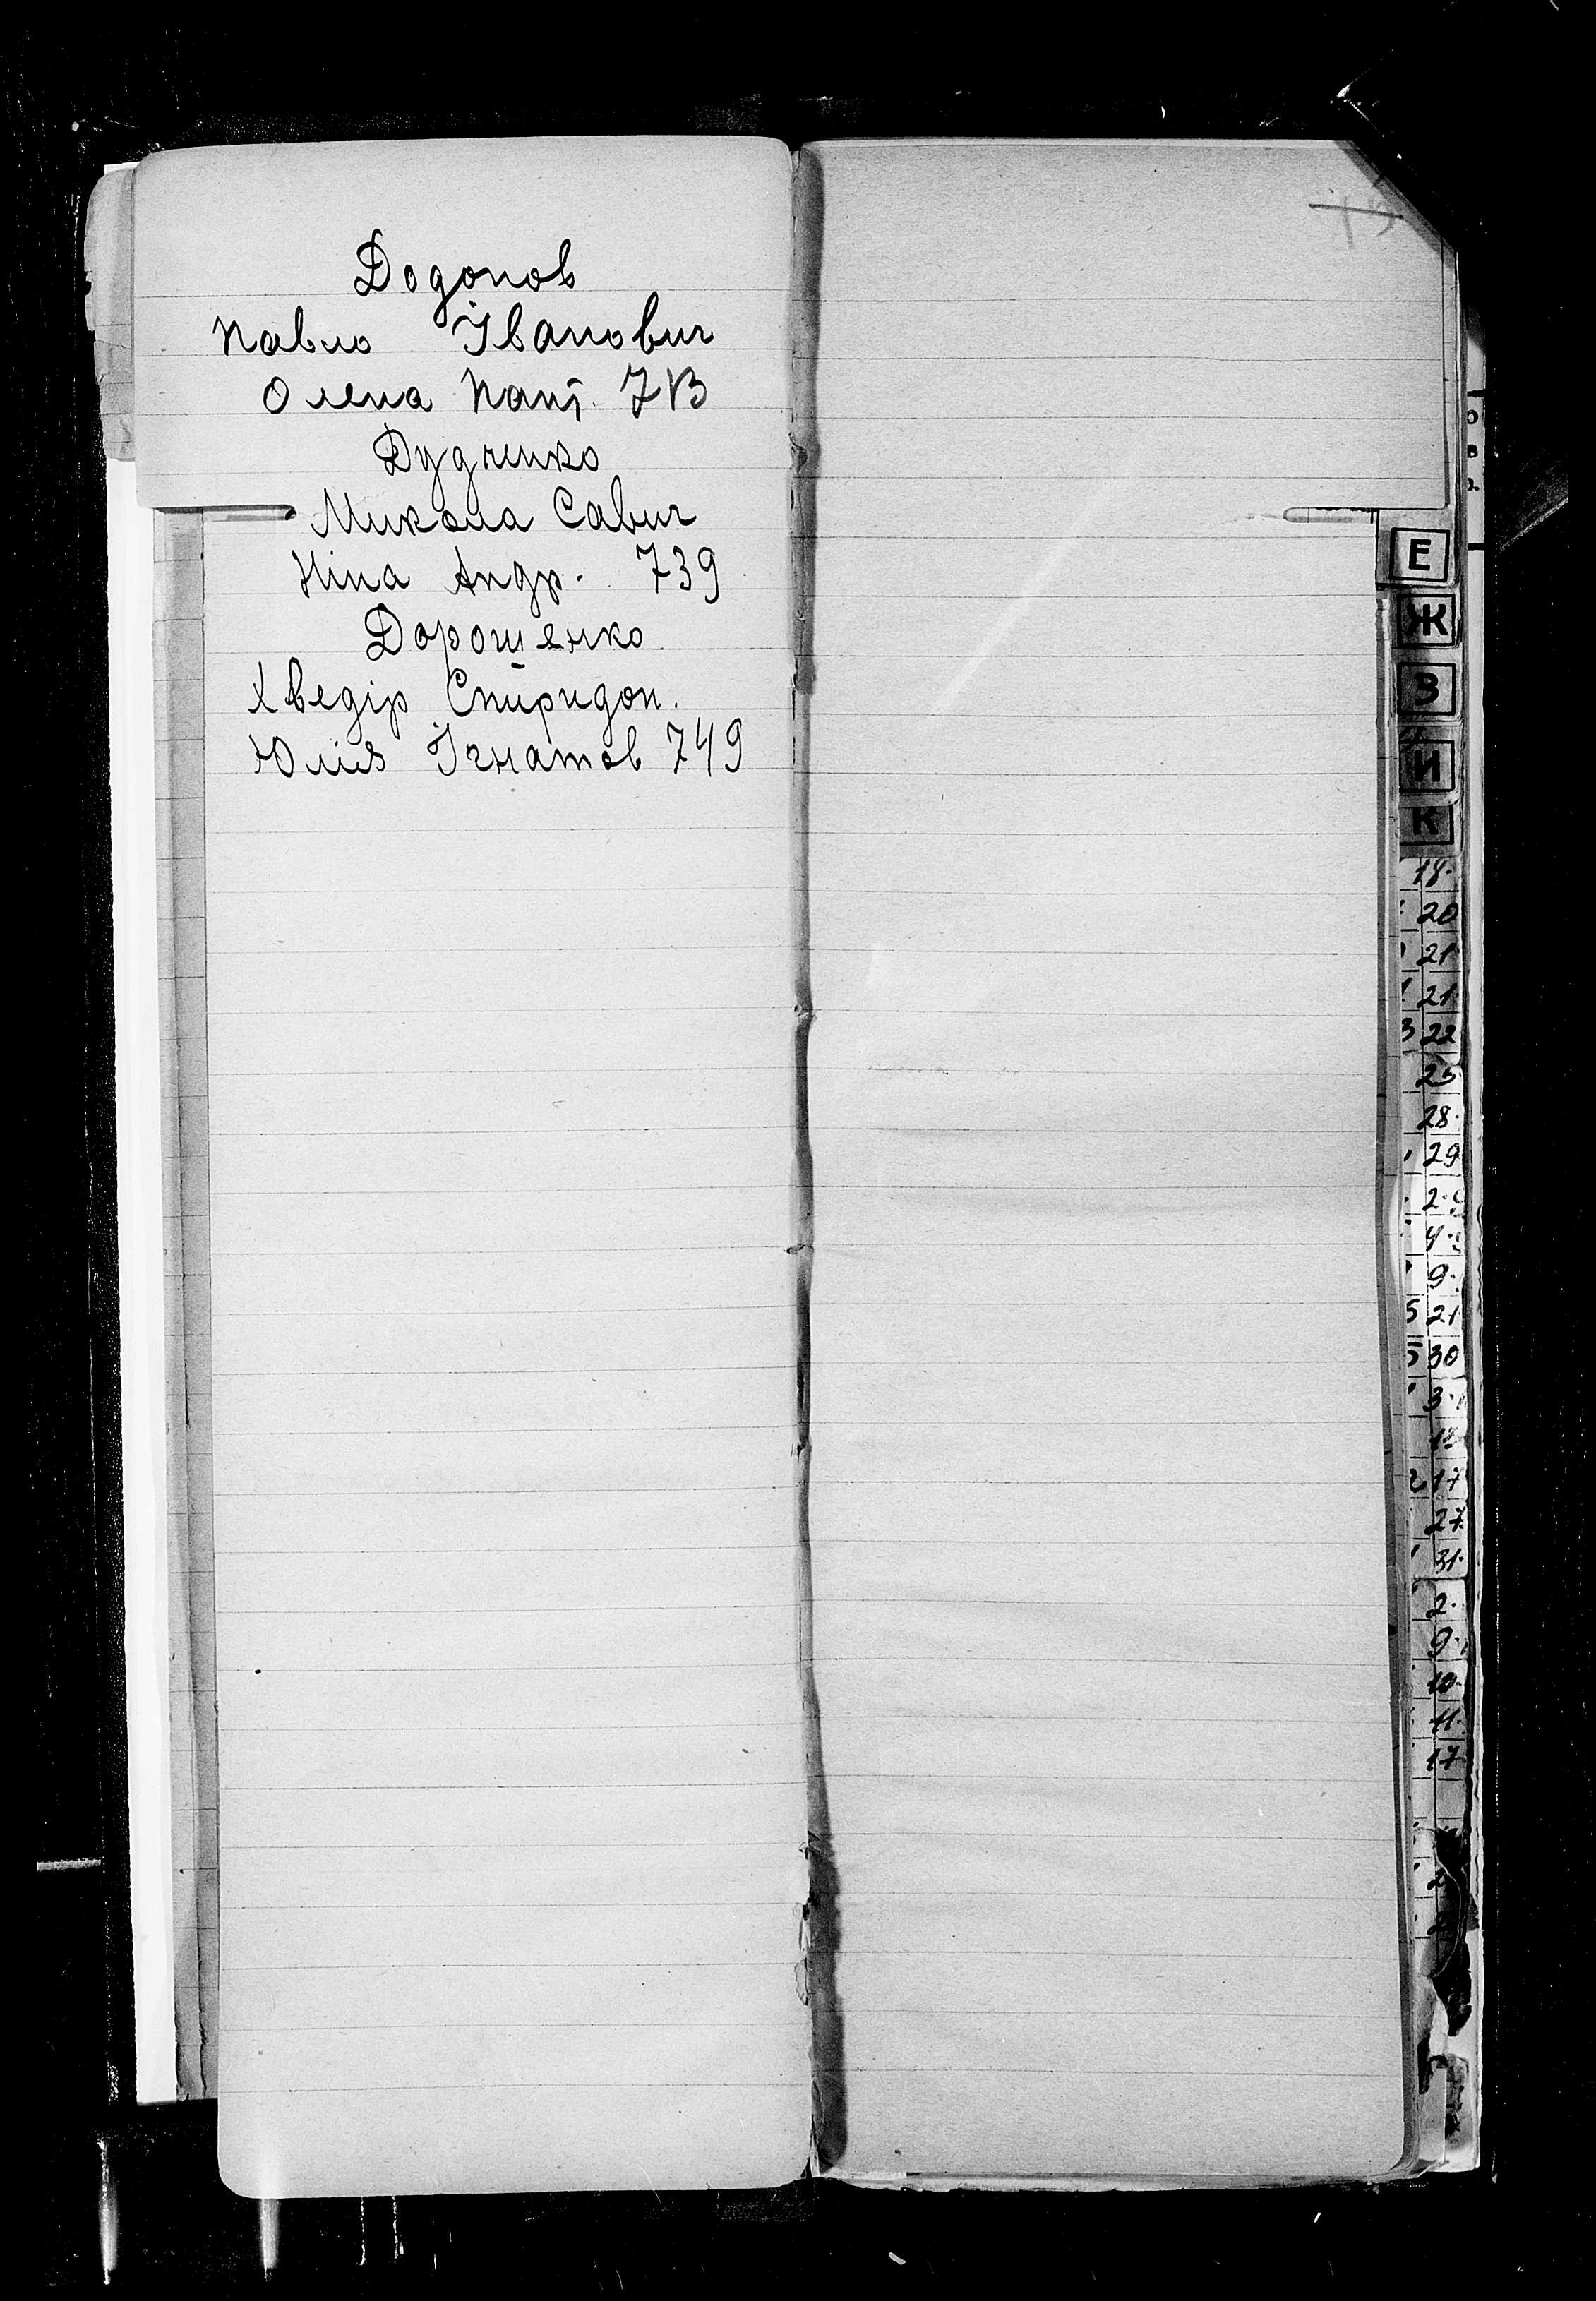 Додонов
Павло Іванович
Олена
Дудченко
Микола Савич
Ніна Андр. 739
Дорошенко
Хведір Спиридон.
Юлія Ігнатов 749
Е
Ж
З
И
К
18.
20
21
21
3 22
25
28.
29
2.
4.
9.
5 21
5 30
3.
17
27
31.
2.
9.
10.
11.
17